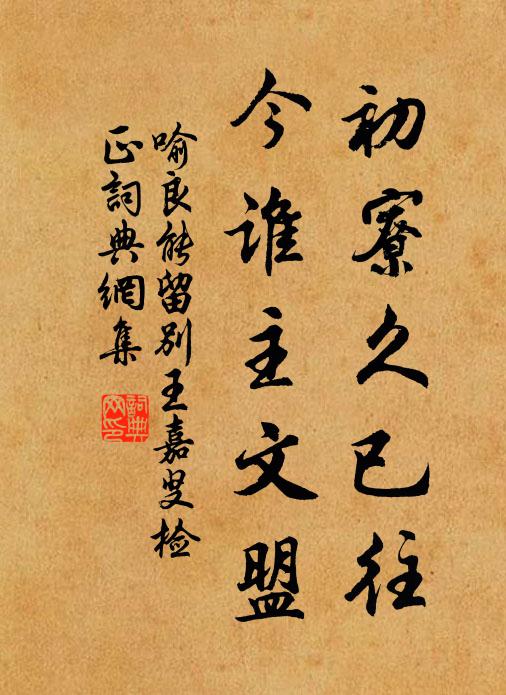 初寮久已往
今谁主文盟
喻良能留别王嘉叟检
正詞典網集
詞典網印